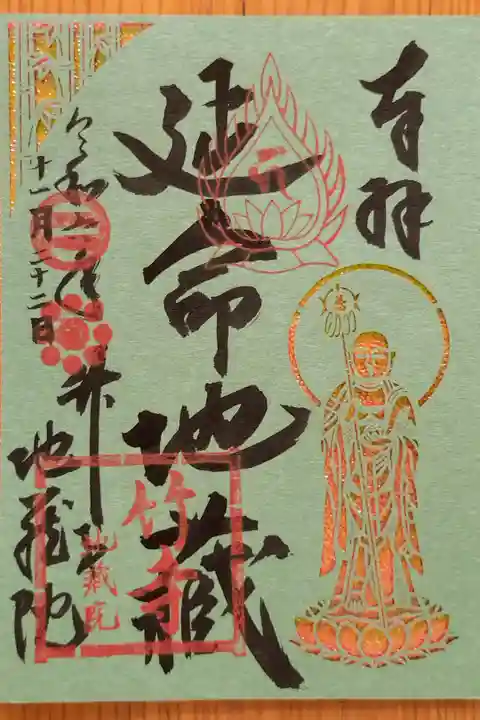 奉拝
延命地蔵
令和六年
十一月二十二日
竹寺
地蔵院
竹の寺
地蔵院